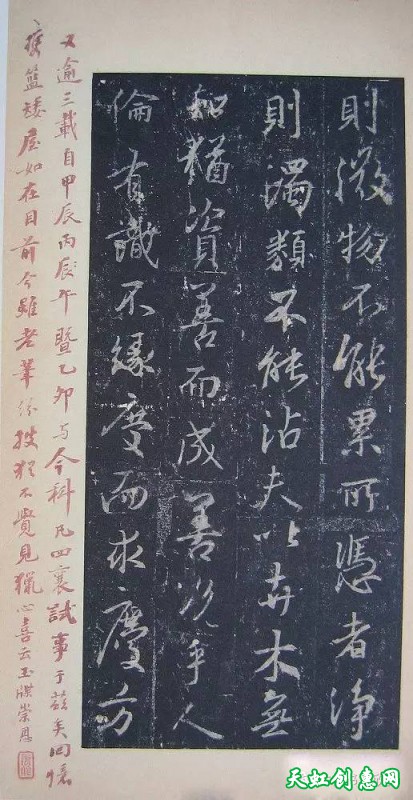 則微物不能累所憑者淨
則濁類不能沾夫以卉木無
知猶資善而成善況乎人
倫有識不緣慶而求慶方
又逾三載自甲辰丙辰午暨乙卯与今科凡四襄試事于茲矣回憶
籃矮屋如在目前今雖老不覺見獵心喜云玉牒崇恩
天虹创惠网